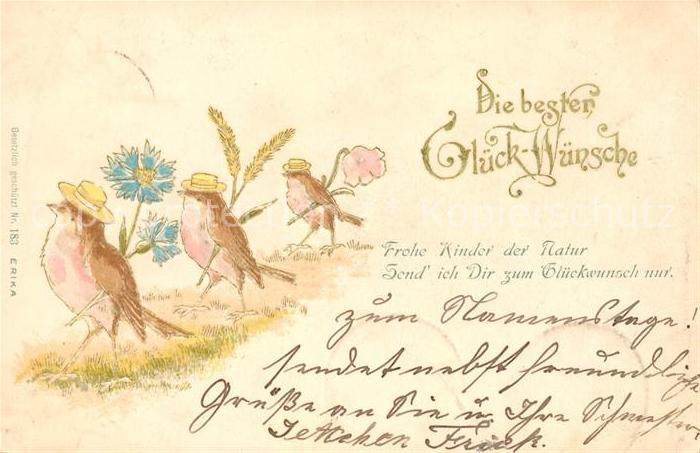 Die besten
Glück-Wünsche
Frohe Kinder der Natur
Send' ich Dir zum Glückwunsch nur.
zum Namenstage!
sendet nebst freundliche
Grüße an Sie u. Ihre Schwester
Jettchen Frick.
Gesetzlich geschützt Nr. 183 ERIKA
Kopierschutz